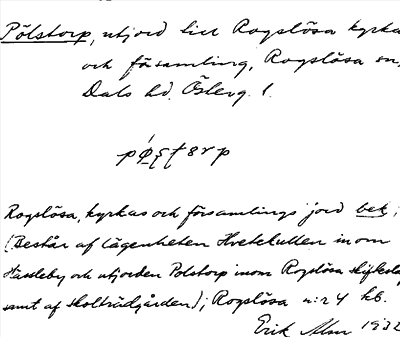 Pölstorp, utjord till Rogslösa kyrka
och församling, Rogslösa sn,
Dals hd. Österg. l.
Rogslösa, kyrkas och församlings jord bek;
(Består af lägenheten Hvetekullen inom
Hässleby och utjorden Polstorp inom Rogslösa skifteslag
samt af Skolträdgården); Rogslösa n:r 4 kb.
Erik Alm 1932